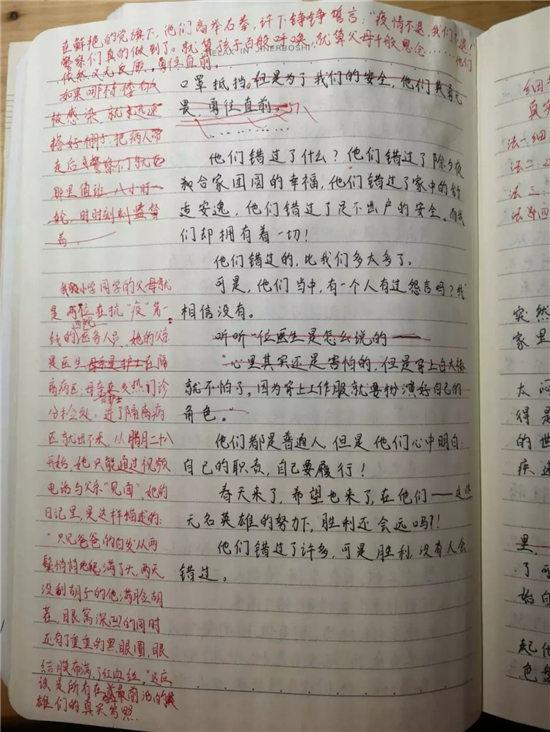 在鲜艳的党旗下,他们高举右拳,许下铮铮誓言:"疫情不退,我们不退!"
警察们真的做到了。就算孩子百般呼唤,就算父母千般思念
依然义无反顾,勇往直前。
口罩抵挡。但是为了我们的安全,他们
畏,勇往直前。
他们错过了什么?他们错过了除夕夜
和合家团圆的幸福,他们错过了家中的舒
适安逸,他们错过了足不出户的安全。
们却拥有着一切!
他们错过的,比我们多太多了。
可是,他们当中,有一个人有过怨言吗?我
相信没有。
听听一位医生是怎么说的——
"心里其实还是害怕的,但是穿上白大褂
就不怕了。因为穿上工作服就要扮演好自己的
角色。"
他们都是普通人,但是他们心中明白:
自己的职责,自己要履行!
春天来了,希望也来了,在他们——这些
无名英雄的努力下,胜利还会远吗?!
他们错过了许多,可是胜利,没有人会
错过。
被感染,就要迅速
搭好棚子,把病人带
走后,警察们就要在
那里值班,八小时一
轮,时时刻刻监督
着。
小学同学的父母就
是两位在抗"疫"第一
线的医务人员,她的父亲
是医生,在隔
离病区;母亲是发热门诊
分检处,进了隔离病
区就出不来,从腊月二十八
开始,她只能通过视频
电话与父亲"见面"她的
日记里,是这样描述的:
"只见爸爸的白发从两
鬓悄悄地爬满了头,两天
没刮胡子的他满脸胡
茬,眼窝深凹的同时
还有了重重的黑眼圈,眼
布满了红血丝。"这应
该是所有在
雄们的真实写照。
细
法一
法二
法三
法四
突然
家里
太
得是
的世
疾
里
了可
始向
起他
色